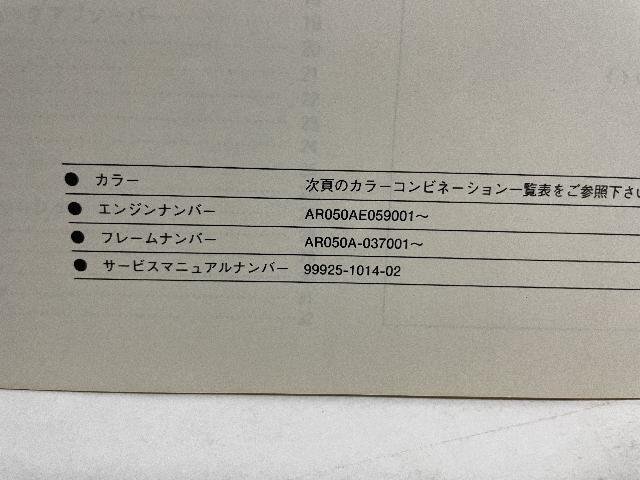 ● カラー 次頁のカラーコンビネーション一覧表をご参照下さい
● エンジンナンバー AR050AE059001～
● フレームナンバー AR050A-037001～
● サービスマニュアルナンバー 99925-1014-02